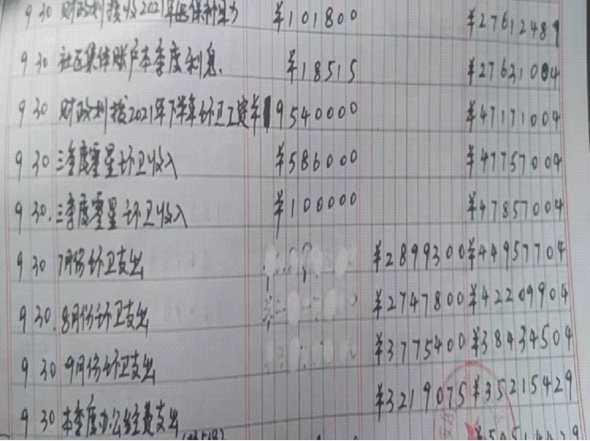 9 30 财政划拨收2021年 ¥101800 ¥27612489
9 30 社区集体账户本季度利息. ¥18515 ¥27631004
9 30 财政划拨2021年下半年环卫工资 ¥19540000 ¥47171004
9 30 三季度零星环卫收入 ¥586000 ¥47757004
9 30. 三季度零星环卫收入 ¥100000 ¥47857004
9 30 7月份环卫支出 ¥2899300 ¥44957704
9 30. 8月份环卫支出 ¥2747800 ¥42209904
9 30 9月份环卫支出 ¥3775400 ¥38434504
9 30 本季度办公经费支出 ¥3219075 ¥35215429